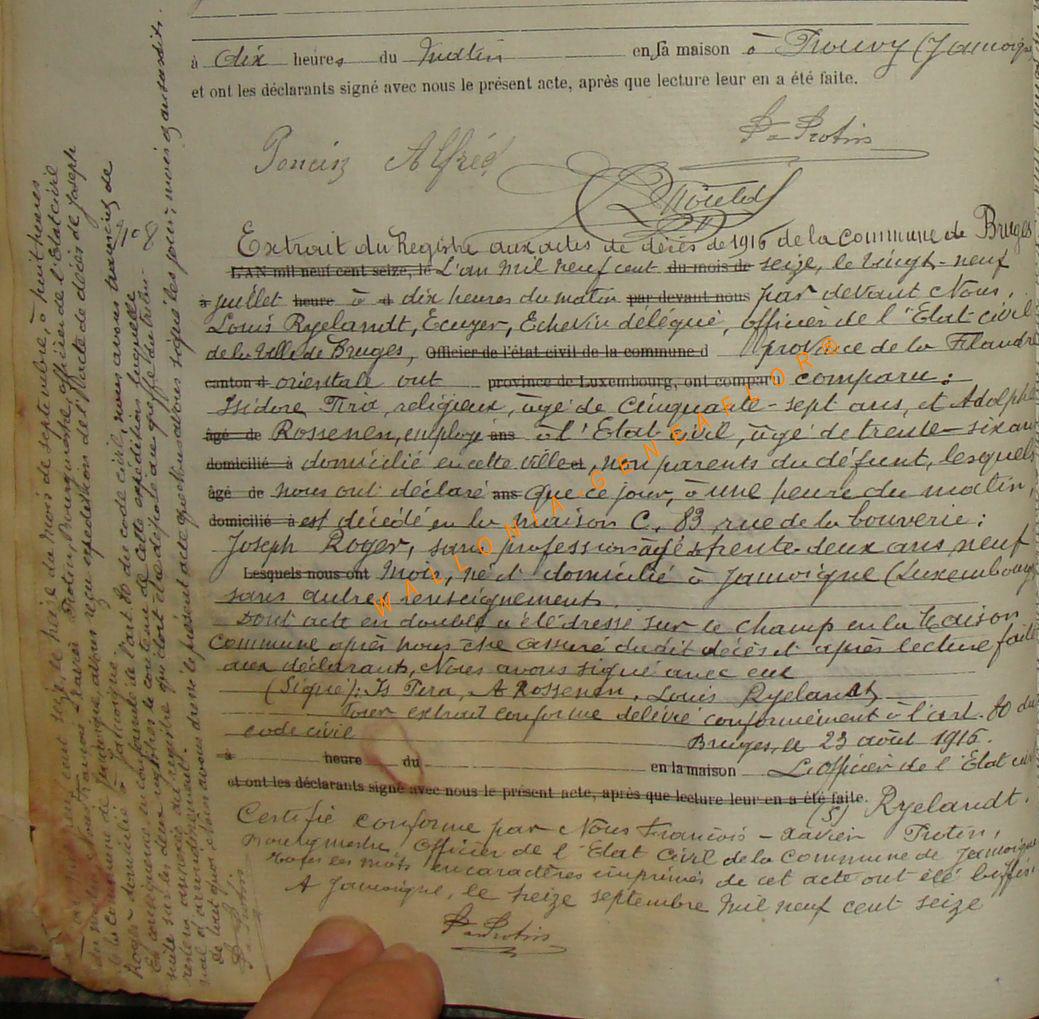 à dix heures du matin en sa maison à Prouvy (Jamoigne
et ont les déclarants signé avec nous le présent acte, après que lecture leur en a été faite.
Poncin Alfred
Protin
N° 8
Extrait du Registre aux actes de décès de 1916 de la commune de Bruges
L'AN mil neuf cent seize, le L'an mil neuf cent du mois de seize, le vingt-neuf
à juillet heure à d dix heures du matin par devant nous par devant Nous,
Louis Ryelandt, Ecuyer, Echevin délégué, officier de l'Etat civil
de la ville de Bruges, Officier de l'état civil de la commune d province de la Flandre
canton d orientale ont province de Luxembourg, ont comparu comparu:
Isidore religieux, âgé de cinquante-sept ans, et Adolphe
âgé de Rossenen, employé ans à l'Etat civil, âgé de trente-six ans
domicilié à domicilié en cette ville et, non parents du défunt, lesquels
âgé de nous ont déclaré ans que ce jour, à une heure du matin,
domicilié à est décédé en la maison C. 83 rue de la bouverie:
Joseph Roger, sans profession âgé trente-deux ans neuf
Lesquels nous ont mois, né et domicilié à Jamoigne (Luxembourg
sans autres renseignements.
Dont acte en double a été dressé sur le champ en la maison
commune après nous être assuré du dit décès et après lecture faite
aux déclarants, Nous avons signé avec eux
(Signé): Is A Rossenen, Louis Ryelandt,
Pour extrait conforme délivré conformément à l'art. 80 du
code civil
Bruges, le 23 août 1916.
à heure du en la maison L'officier de l'Etat civil
et ont les déclarants signé avec nous le présent acte, après que lecture leur en a été faite.
(S) Ryelandt.
Certifié conforme par Nous François-Xavier Protin,
Bourgmestre, Officier de l'Etat Civil de la commune de Jamoigne
Toutes les mots en caractères imprimés de cet acte ont été biffés
A Jamoigne, le seize septembre mil neuf cent seize
Protin
L'an mil neuf cent seize, le seize du mois de septembre, à huit heures
du matin, Nous François Xavier Protin, Bourgmestre, officier de l'Etat civil
de la commune de Jamoigne, avons reçu expédition de l'acte de décès de Joseph
Roger domicilié à Jamoigne
En conséquence en conformité de l'art. 80 du code civil, nous avons transcrit de
suite sur les deux registres le contenu de cette expédition laquelle
restera annexée au registre qui doit être déposé au greffe du tribu-
nal d'arrondissement.
De tout quoi, Nous avons dressé le présent acte que Nous avons signé les jour, mois et an susdits.
Protin
WALLONIA-GENEALOR®